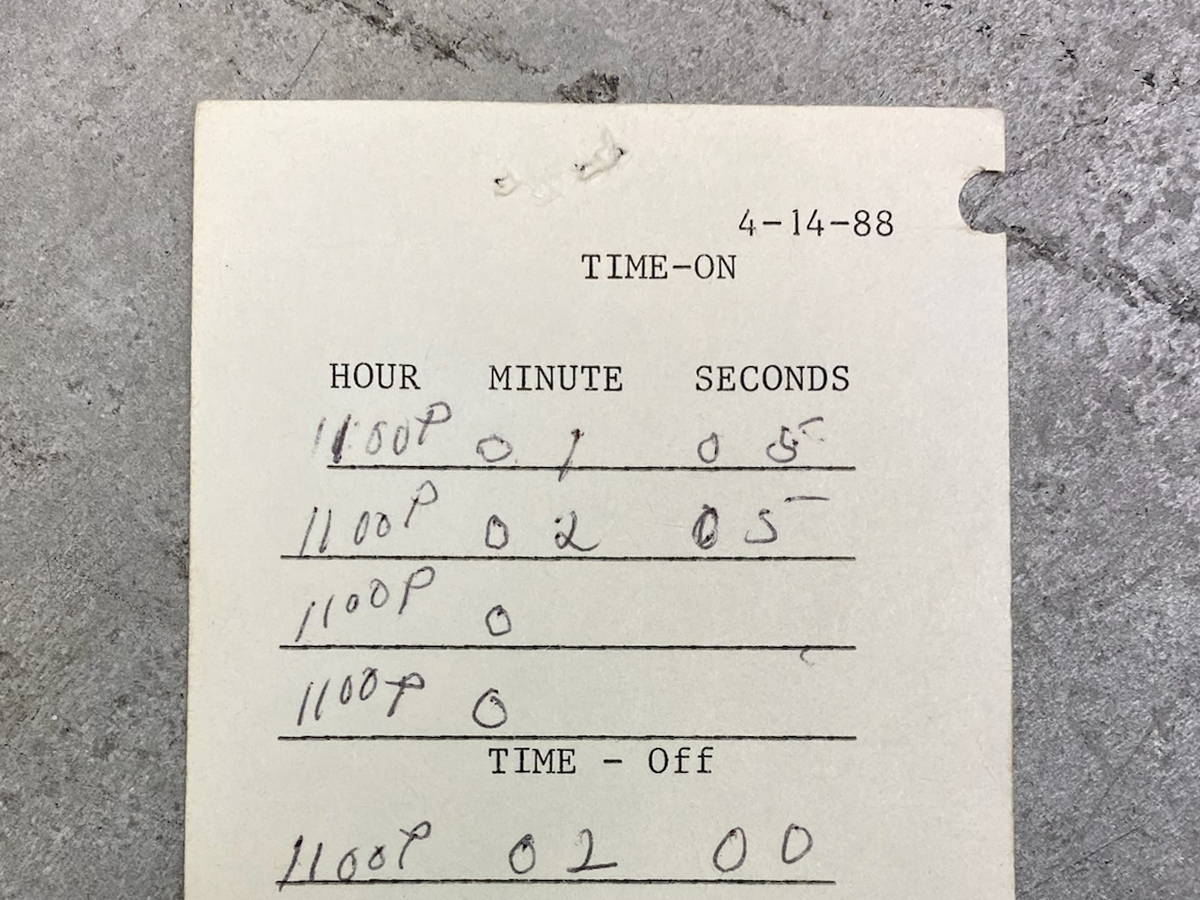 4-14-88
TIME-ON
HOUR MINUTE SECONDS
1100P 0 1 0 5
1100P 0 2 0 5
1100P 0
1100P 0
TIME - Off
1100P 0 2 0 0